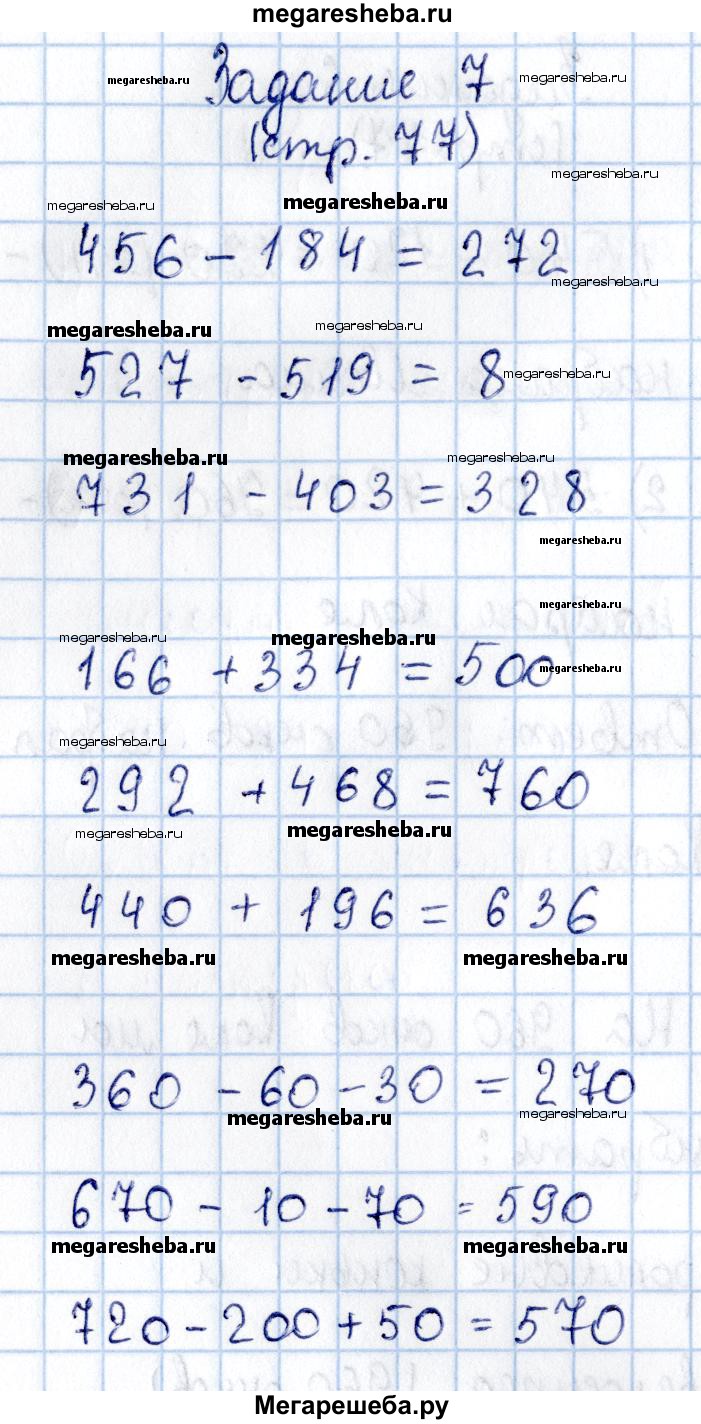 megaresheba.ru
megaresheba.ru Задание 7 megaresheba.ru
(стр. 77)
megaresheba.ru
megaresheba.ru megaresheba.ru
456 - 184 = 272
megaresheba.ru
megaresheba.ru megaresheba.ru
527 - 519 = 8 megaresheba.ru
megaresheba.ru megaresheba.ru
731 - 403 = 328
megaresheba.ru
megaresheba.ru
megaresheba.ru megaresheba.ru
166 + 334 = 500 megaresheba.ru
megaresheba.ru
292 + 468 = 760
megaresheba.ru megaresheba.ru
440 + 196 = 636
megaresheba.ru megaresheba.ru
360 - 60 - 30 = 270
megaresheba.ru megaresheba.ru
670 - 10 - 70 = 590
megaresheba.ru megaresheba.ru
720 - 200 + 50 = 570
Мегарешеба.ру